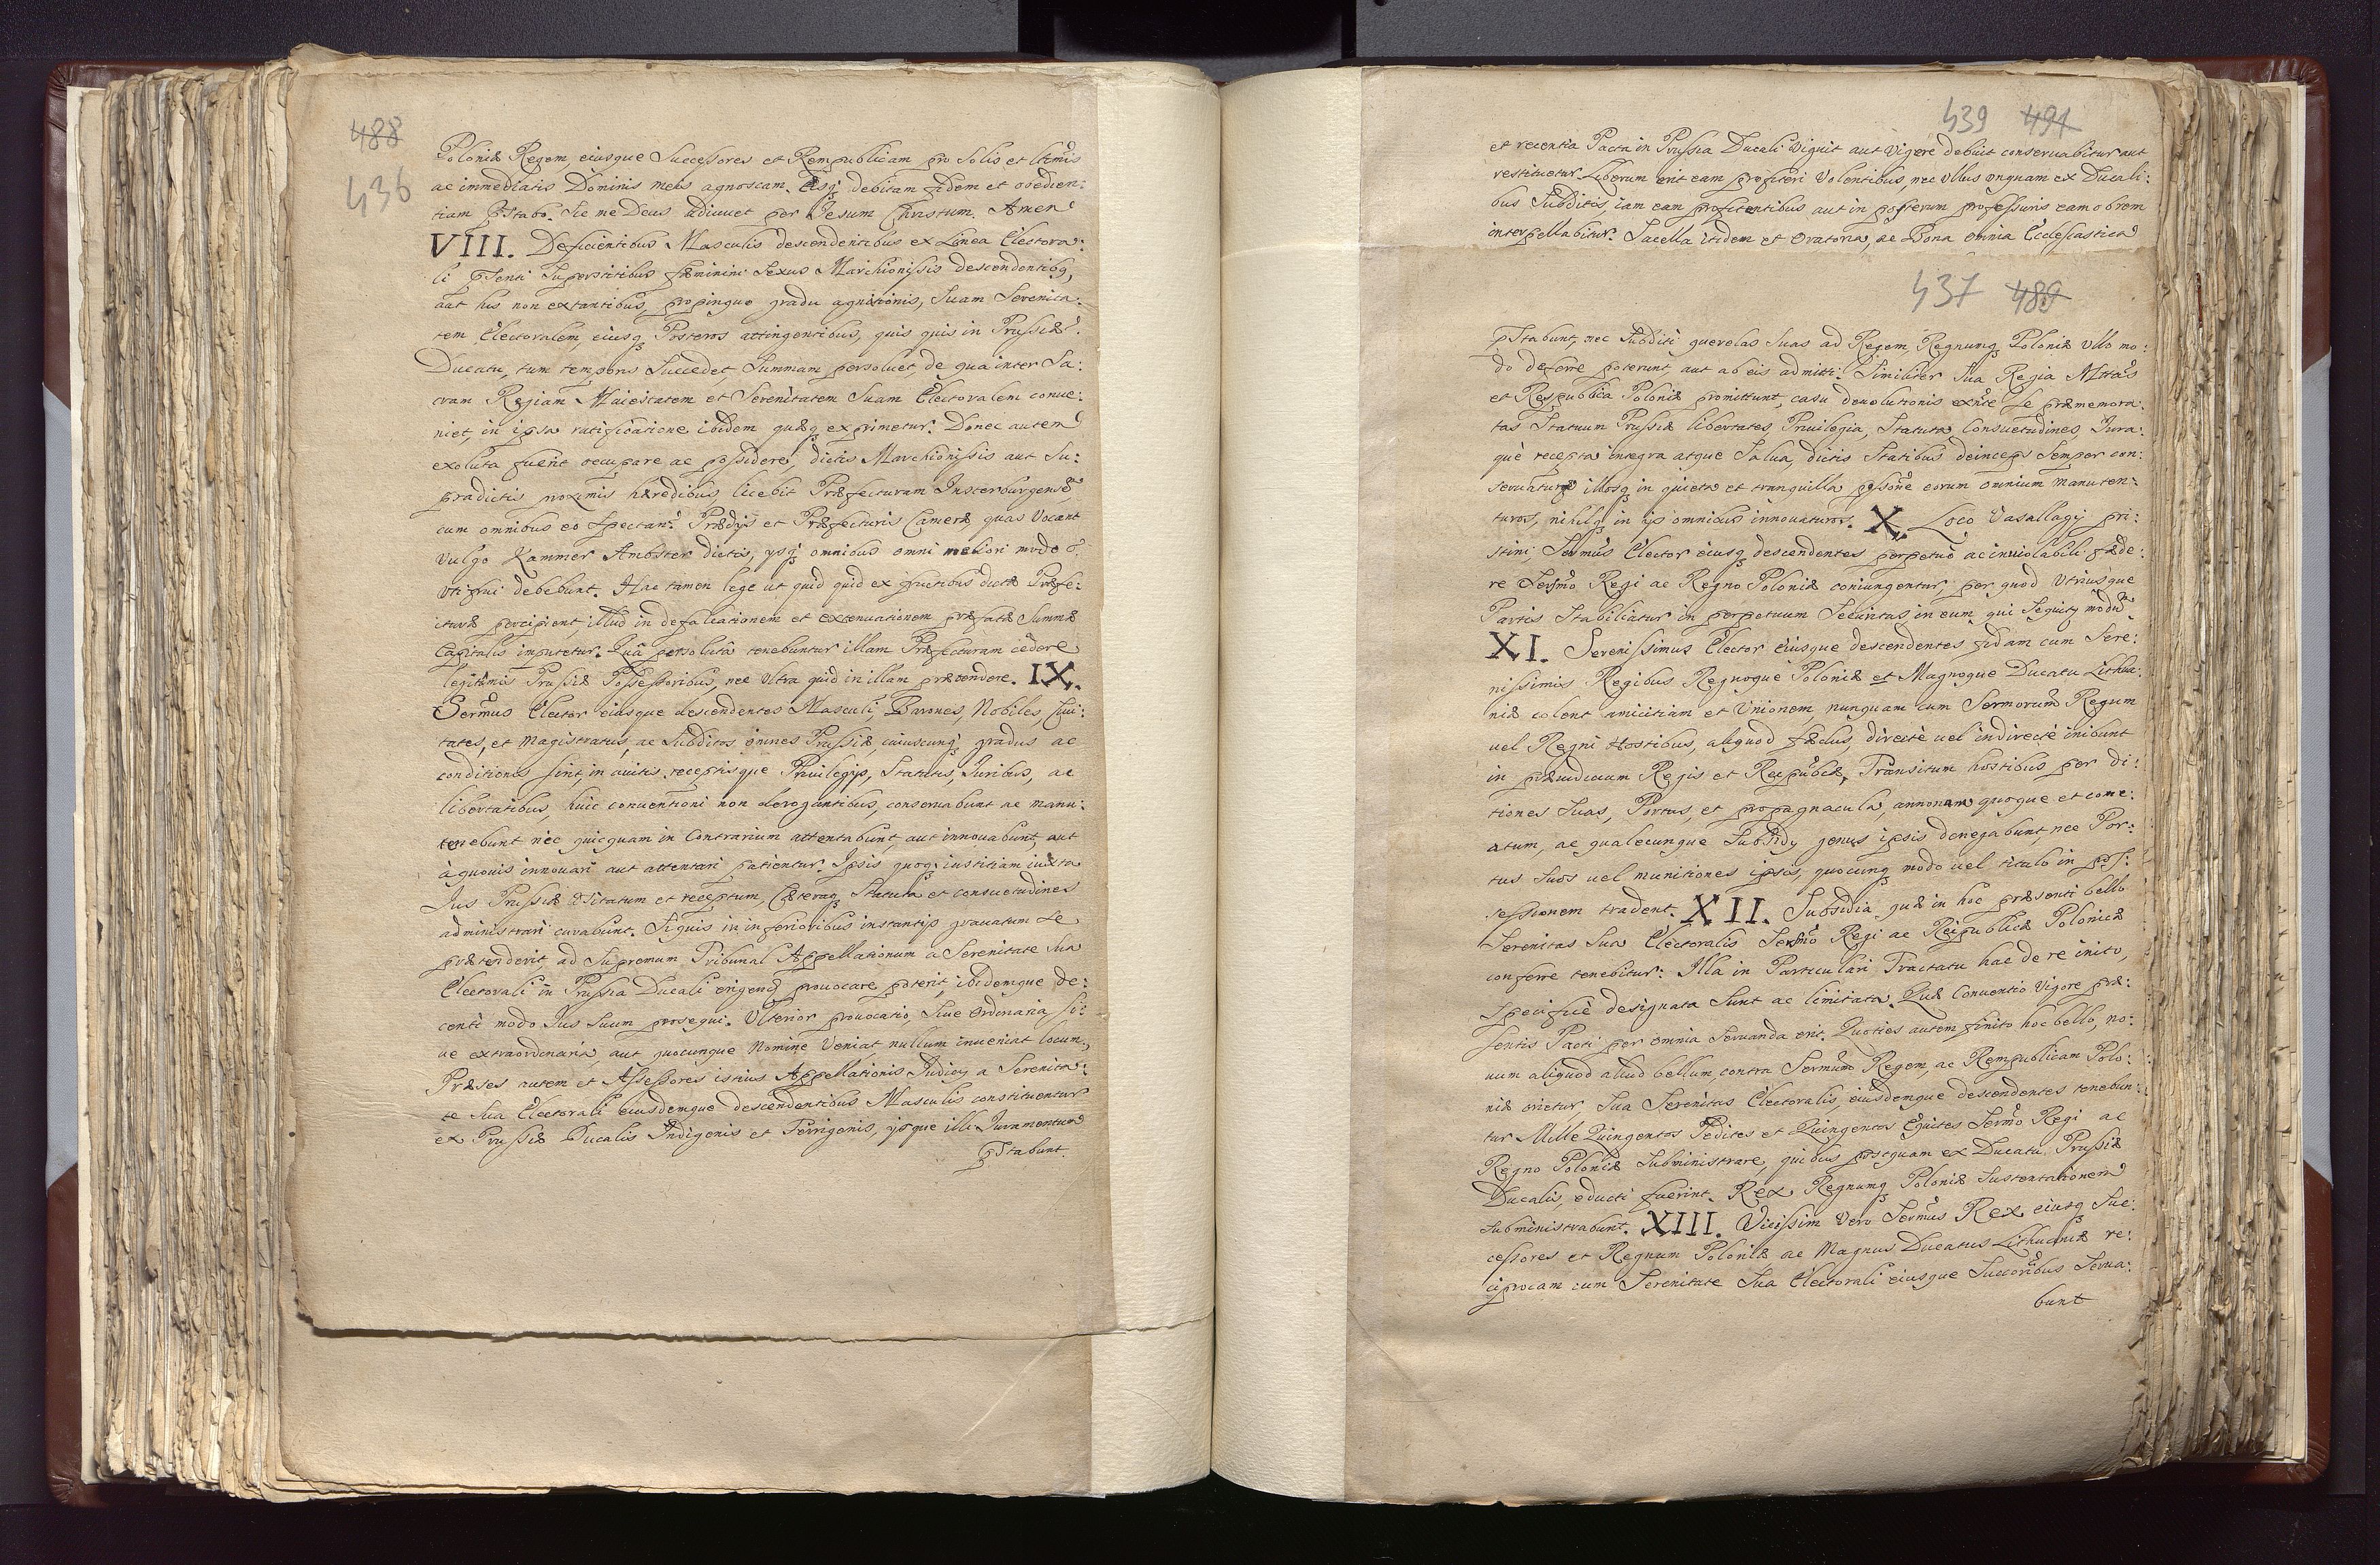 488
436
Poloniæ Regem, eiusque Successores et Rempublicam pro Solis et ltimis
ac immediatis Dominis meis agnoscam. Eisq; debitam fidem et obedien:
tiam pstabo. Sic me Deus adiuuet per Jesum Christum. Amen
VIII. Deficientibus Masculis descendentibus ex Linea Electora:
li psenti Superstitibus fæminini Sexus Marchionissis descendentibq,
aut his non extantibus, propinquo gradu agnitionis, Suam Serenita:
tem Electoralem, eiusq Posteros attingentibus, quis quis in Prussiæ
Ducatu, tum temporis Succedet, Summam persoluet, de qua inter Sa:
cram Regiam Maiestatem et Serenitatem Suam Electoralem conue:
niet, in ipsa ratificatione ibidem quæq exprimetur. Donec autem
exoluta fuerit occupare ac possidere, dictis Marchionissis aut Su:
pradictis proximis hæredibus, licebit Præfecturam Insterburgensē
cum omnibus eo Spectan: Prædijs et Præfecturis Cameræ quas Vocant
Vulgo Kammer Ambster dictis, ysq omnibus omni meliori modo
Vti frui debebunt. Hac tamen lege ut quid quid ex fructibus dictæ Præfe:
cturæ percipient, illud in defalcationem et extenuationem præfatæ Summæ
Capitalis imputetur. Quâ persolutâ tenebuntur illam Præfecturam cedere
legitimis Prussiæ Possessoribus, nec Vltra quid in illam prætendere. IX.
Sermus Elector eiusque descendentes Masculi, Barones, Nobiles, Ciui:
tates, et Magistratus, ac Subditos omnes Prussiæ, cuiuscunq gradus ac
conditionis sint, in auitis receptisque Priuilegijs, Statutis, Juribus, ac
libertatibus, huic conuentioni non derogantibus, conseruabunt ac manu:
tenebunt nec quicquam in Contrarium attentabunt aut innouabunt, aut
à quouis innouari aut attentari patientur. Ipsis quoq; iustitiam iuxta
Jus Prussiæ Vsitatum et receptum, Cæteraq Statuta et consuetudines
administrari curabunt. Siquis in inferioribus instantijs grauatum Se
prætenderit, ad Supremum Tribunal Appellationum a Serenitate Sua
Electorali in Prussia Ducali erigend prouocare poterit, ibidemque de:
centi modo Jus Suum prosequi. Vlterior prouocatio, Siue Ordinaria, Si:
ue extraordinaria, aut quocunque Nomine Veniat nullum inueniat locum.
Præses autem et Assessores istius Appellationis Judicy a Serenita:
te Sua Electorali eiusdemque descendentibus Masculis constituentur
ex Prussiæ Ducalis Indigenis et Terrigenis, ysque illi Juramentum
pstabunt.
439 491
et recentia Pacta in Prussia Ducali Viguit aut Vigere debuit conseruabitur aut
restituetur. Liberum erit eam profiteri Volentibus, nec Vllus Vnquam ex Ducali:
bus Subditis, iam eam profitentibus aut in posterum professuris eam ob rem
interpellabitur. Sacella itidem et Oratoria, ac Bona omnia Ecclesiastica
437 489
pstabunt, nec Subditi querelas Suas ad Regem, Regnumq Poloniæ Vllo mo:
do deferre poterunt, aut ab eis admitti. Similiter Sua Regia Mttas
et Respublica Poloniæ promittunt, casu deuolutionis exnte Se præmemora:
tas Statuum Prussiæ libertates, Priuilegia, Statuta, Consuetudines, Jura:
què recepta integra atque Salua, dictis Statibus deinceps Semper con:
seruaturæ illosq in quieta et tranquilla possone eorum omnium manuten:
turos, nihilq in ijs omnibus innouaturos. X. Loco Vasallagij pri:
stini, Sermus Elector eiusq descendentes perpetuo ac inuiolabili fæde:
re Sermo Regi ac Regno Poloniæ coniungentur, per quod Vtriusque
Partis Stabiliatur in perpetuum Securitas, in eum qui Sequitq modū
XI. Serenissimus Elector Eiusque descendentes fidam cum Sere:
nissimis Regibus Regnoque Poloniæ et Magnoque Ducatu Lithua:
niæ colent amicitiam et Vnionem, nunquam cum Sermorum Regum
uel Regni Hostibus, aliquod fædus, directè uel indirectè inibunt
in præiudicium Regis et Reipublcæ, Transitum hostibus per di:
tiones Suas, Portus, et propugnacula, annonam quoque et come:
atum, ac qualecunque Subsidij genus ipsis denegabunt, nec Por:
tus Suos uel munitiones ipsis, quocunq modo uel titulo in pos:
sessionem tradent. XII. Subsidia quæ in hoc præsenti bello
Serenitas Sua Electoralis Sermo Regi ac Reipublicæ Polonicæ
conferre tenebitur: Illa in Particulari Tractatu hac de re inito,
Specificè designata Sunt ac limitata. Quæ Conuentio Vigore præ:
sentis Pacti per omnia Seruanda erit. Quoties autem finito hoc bello, no:
uum aliquod aliud bellum, contra Sermum Regem, ac Rempublicam Polo:
niæ orietur, Sua Serenitas Electoralis, eiusdemque descendentes tenebun:
tur Mille Quingentos Pedites et Quingentos Equites Sermo Regi ac
Regno Poloniæ Subministrare, quibus postquam ex Ducatu Prussiæ
Ducalis, educti fuerint. Rex Regnumq Poloniæ Sustentationem
Subministrabunt. XIII. Vicissim Vero Sermus Rex eiusq Suc:
cessores et Regnum Poloniæ ac Magnus Ducatus Lithuaniæ re:
ciprocam cum Serenitate Sua Electorali eiusque Succoribus Serua:
bunt